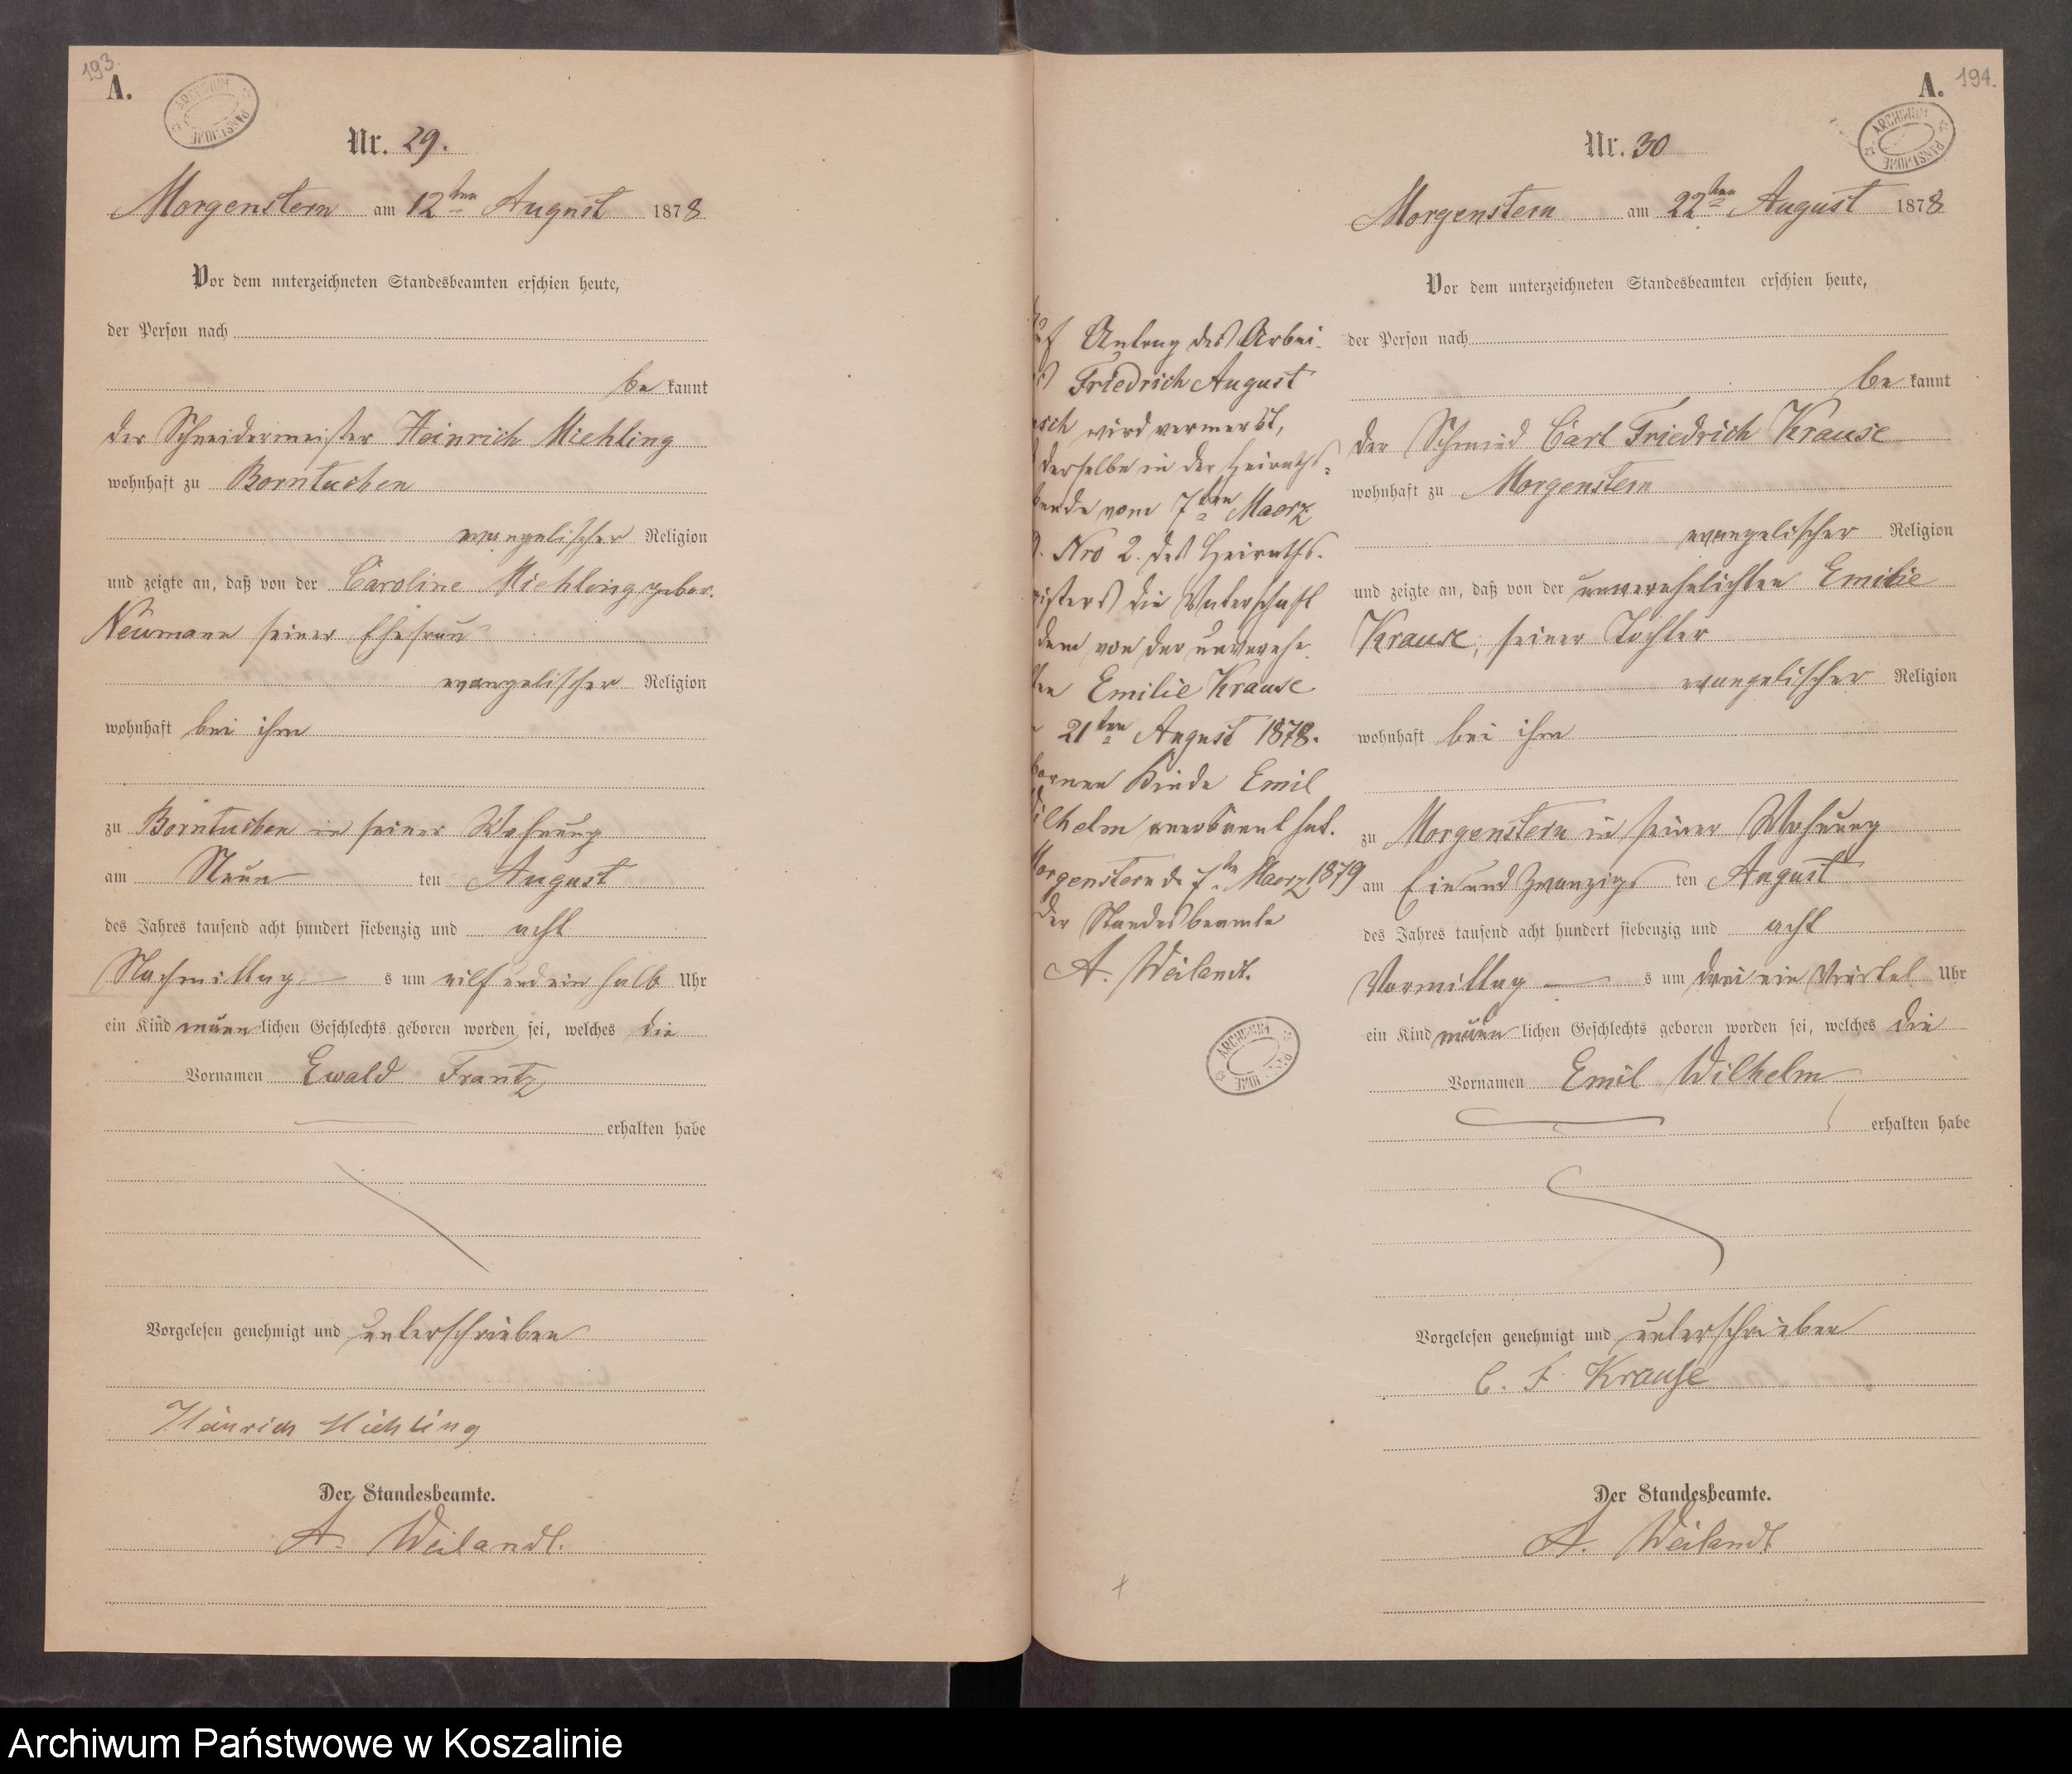 193.
A.
ARCHIWUM PAŃSTWOWE
Nr. 29.
Morgenstern am 12ten August 1878
Vor dem unterzeichneten Standesbeamten erschien heute,
der Person nach
be kannt
der Schneidermeister Heinrich Miehling
wohnhaft zu Borntuchen
evangelischer Religion
und zeigte an, daß von der Caroline Miehling gebor.
Neumann seiner Ehefrau
evangelischer Religion
wohnhaft bei ihm
zu Borntuchen in seiner Wohnung
am Neun ten August
des Jahres tausend acht hundert siebenzig und acht
Nachmittag s um eilf und ein halb Uhr
ein Kind männ lichen Geschlechts geboren worden sei, welches die
Vornamen Ewald Frantz
erhalten habe
Vorgelesen genehmigt und unterschrieben
Heinrich Miehling
Der Standesbeamte.
A. Weilandt.
194.
A.
ARCHIWUM PAŃSTWOWE
Nr. 30
Morgenstern am 22ten August 1878
Vor dem unterzeichneten Standesbeamten erschien heute,
der Person nach
be kannt
der Schmied Carl Friedrich Krause
wohnhaft zu Morgenstern
evangelischer Religion
und zeigte an, daß von der unverehelichten Emilie
Krause, seiner Tochter
evangelischer Religion
wohnhaft bei ihm
zu Morgenstern in seiner Wohnung
am Ein und Zwanzigs ten August
des Jahres tausend acht hundert siebenzig und acht
Vormittag s um drei ein Viertel Uhr
ein Kind männ lichen Geschlechts geboren worden sei, welches die
Vornamen Emil Wilhelm
erhalten habe
Vorgelesen genehmigt und unterschrieben
C. F. Krause
Der Standesbeamte.
A. Weilandt
uf Antrag des Arbei-
Friedrich August
wird vermerkt,
derselbe in der Heiraths-
unde vom 7ten Maerz
9. Nro 2. des Heiraths-
gisters die Vaterschaft
dem von der unverehe
ten Emilie Krause
21ten August 1878.
bornen Kinde Emil
ilhelm anerkannt hat.
Morgenstern d. 7ten Maerz 1879
Der Standesbeamte
A. Weilandt.
ARCHIWUM
Archiwum Państwowe w Koszalinie